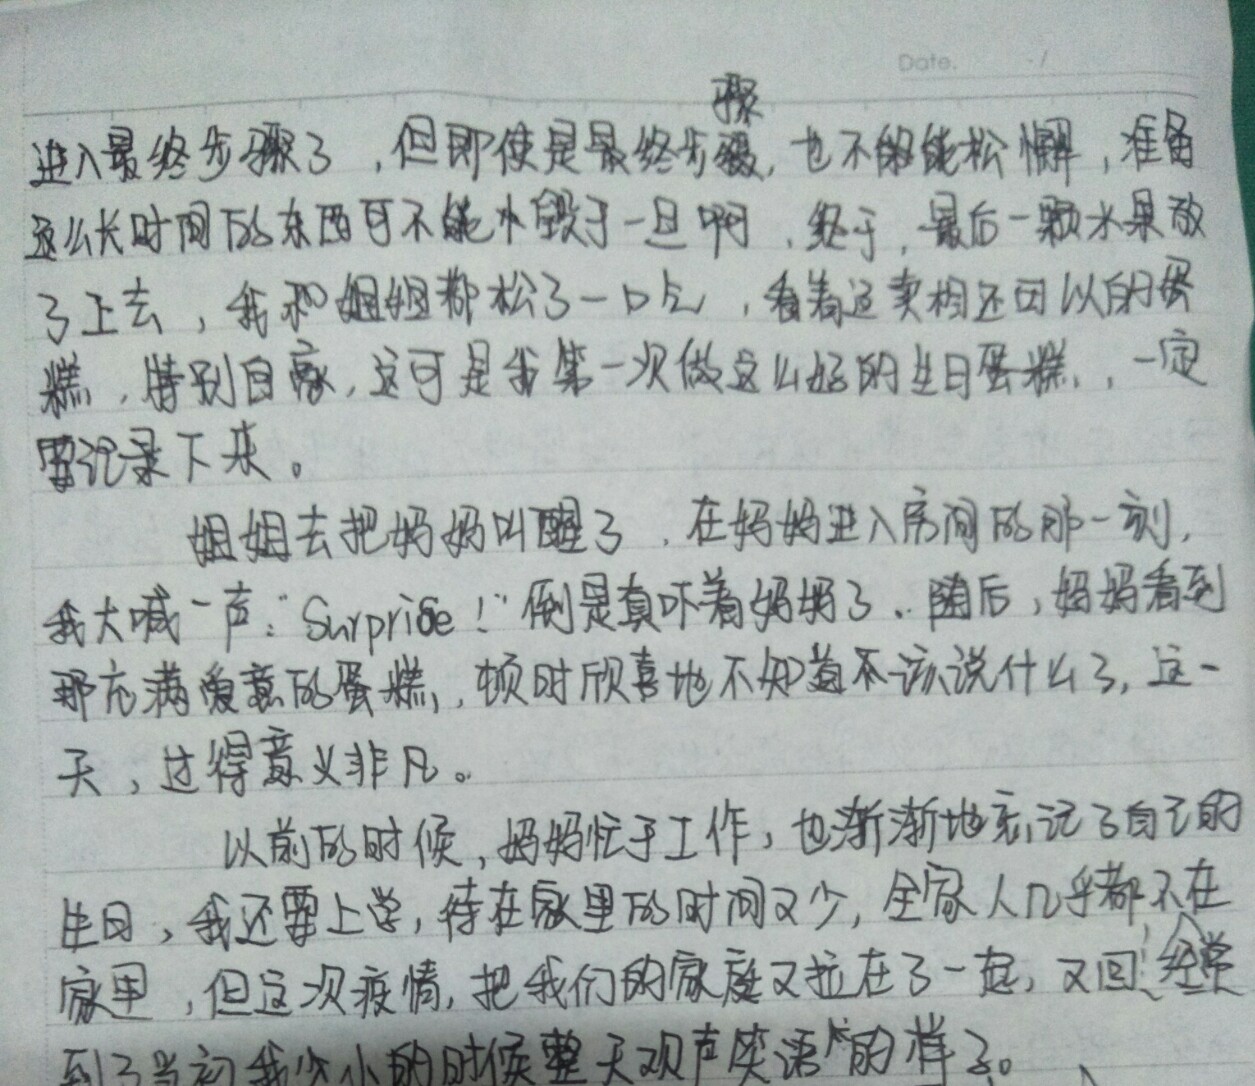 Date.
骤
进入最终步骤了，但即使是最终步骤，也不能能松懈，准备
这么长时间的东西可不能水毁于一旦啊，终于，最后一颗水果放
了上去，我和姐姐都松了一口气，看着这卖相还可以的蛋
糕，特别自豪，这可是我第一次做这么好的生日蛋糕，一定
要记录下来。
姐姐去把妈妈叫醒了，在妈妈进入房间的那一刻，
我大喊一声：“Surprise！”倒是真吓着妈妈了。随后，妈妈看到
那充满爱意的蛋糕，顿时欣喜地不知道不该说什么了，这一
天，过得意义非凡。
以前的时候，妈妈忙于工作，也渐渐地忘记了自己的
生日，我还要上学，待在家里的时间又少，全家人几乎都不在
家里，但这次疫情，把我们的家庭又拉在了一起，又回经常
到了当初我小小的时候整天欢声笑语的样子。